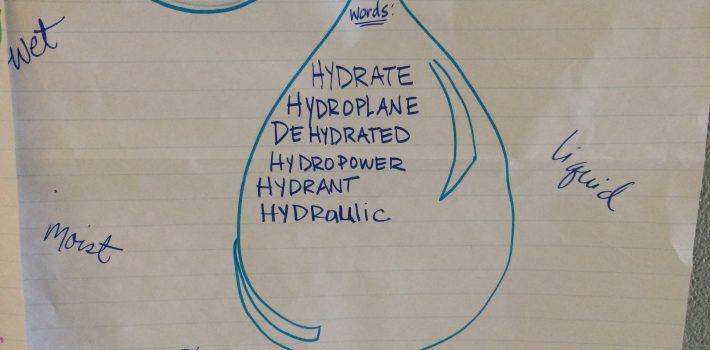 words:
Wet
HYDRATE
HYDROPLANE
DEHYDRATED
HYDROPOWER
liquid
HYDRANT
HYDRaulic
Moist